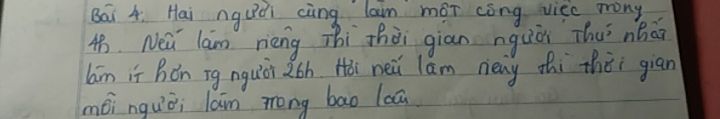 Bài 4. Hai người cùng làm một công việc trong
4h. Nếu làm riêng thì thời gian người thứ nhất
làm ít hơn tg người 2 6h. Hỏi nếu làm riêng thì thời gian
mỗi người làm trong bao lâu.